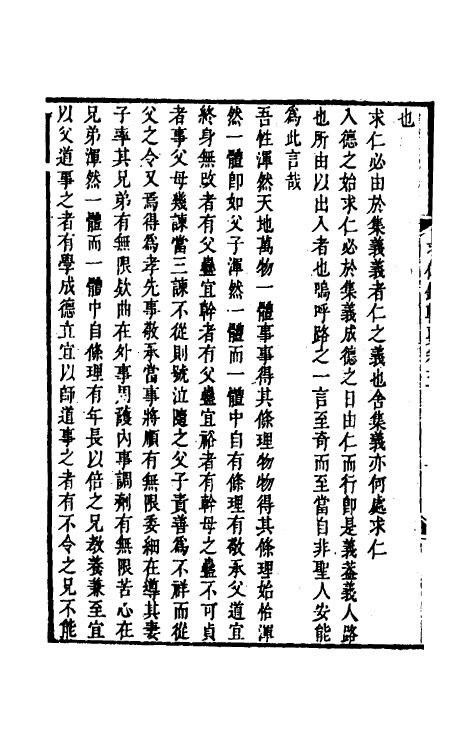 也
求仁必由於集義義者仁之義也舍集義亦何處求仁
入德之始求仁必於集義成德之日由仁而行卽是義葢義人路
也所由以出入者也嗚呼路之一言至奇而至當自非聖人安能
爲此言哉
吾性渾然天地萬物一體事事得其條理物物得其條理始恰渾
然一體卽如父子渾然一體而一體中自有條理有敬承父道宜
終身無改者有父蠱宜幹者有父蠱宜裕者有幹母之蠱不可貞
者事父母幾諫當三諫不從則號泣隨之父子責善爲不祥而從
父之令又焉得爲孝先事敬承當事將順有無限委細在導其妻
子率其兄弟有無限欵曲在外事周護內事調劑有無限苦心在
兄弟渾然一體而一體中自條理有年長以倍之兄敎養兼至宜
以父道事之者有學成德立宜以師道事之者有不令之兄不能